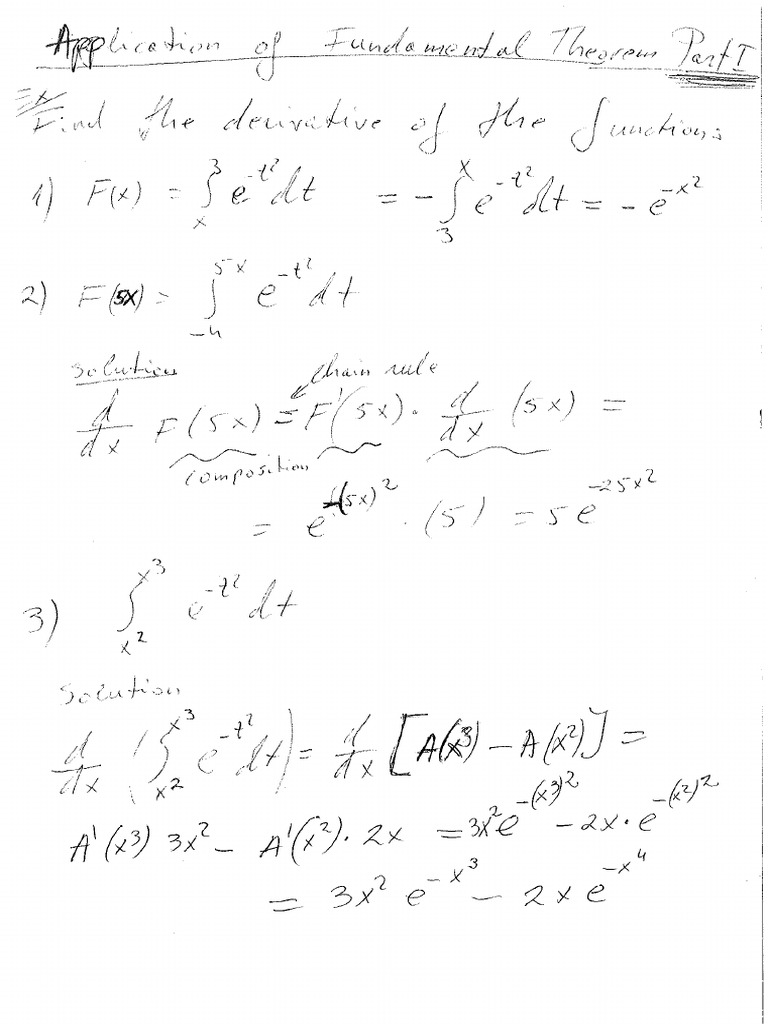 Application of Fundamental Theorem Part I
Find the derivative of the functions
1) F(x) = ∫_x^3 e^{-t²} dt = -∫_3^x e^{-t²} dt = -e^{-x²}
2) F(5x) = ∫_{-4}^{5x} e^{-t²} dt
Solution chain rule
d/dx F(5x) = F'(5x) · d/dx (5x) =
composition
= e^{-(5x)²} · (5) = 5e^{-25x²}
3) ∫_{x²}^{x³} e^{-t²} dt
Solution
d/dx (∫_{x²}^{x³} e^{-t²} dt) = d/dx [A(x³) - A(x²)] =
A'(x³) 3x² - A'(x²) · 2x = 3x² e^{-(x³)²} - 2x · e^{-(x²)²}
= 3x² e^{-x³} - 2x e^{-x⁴}